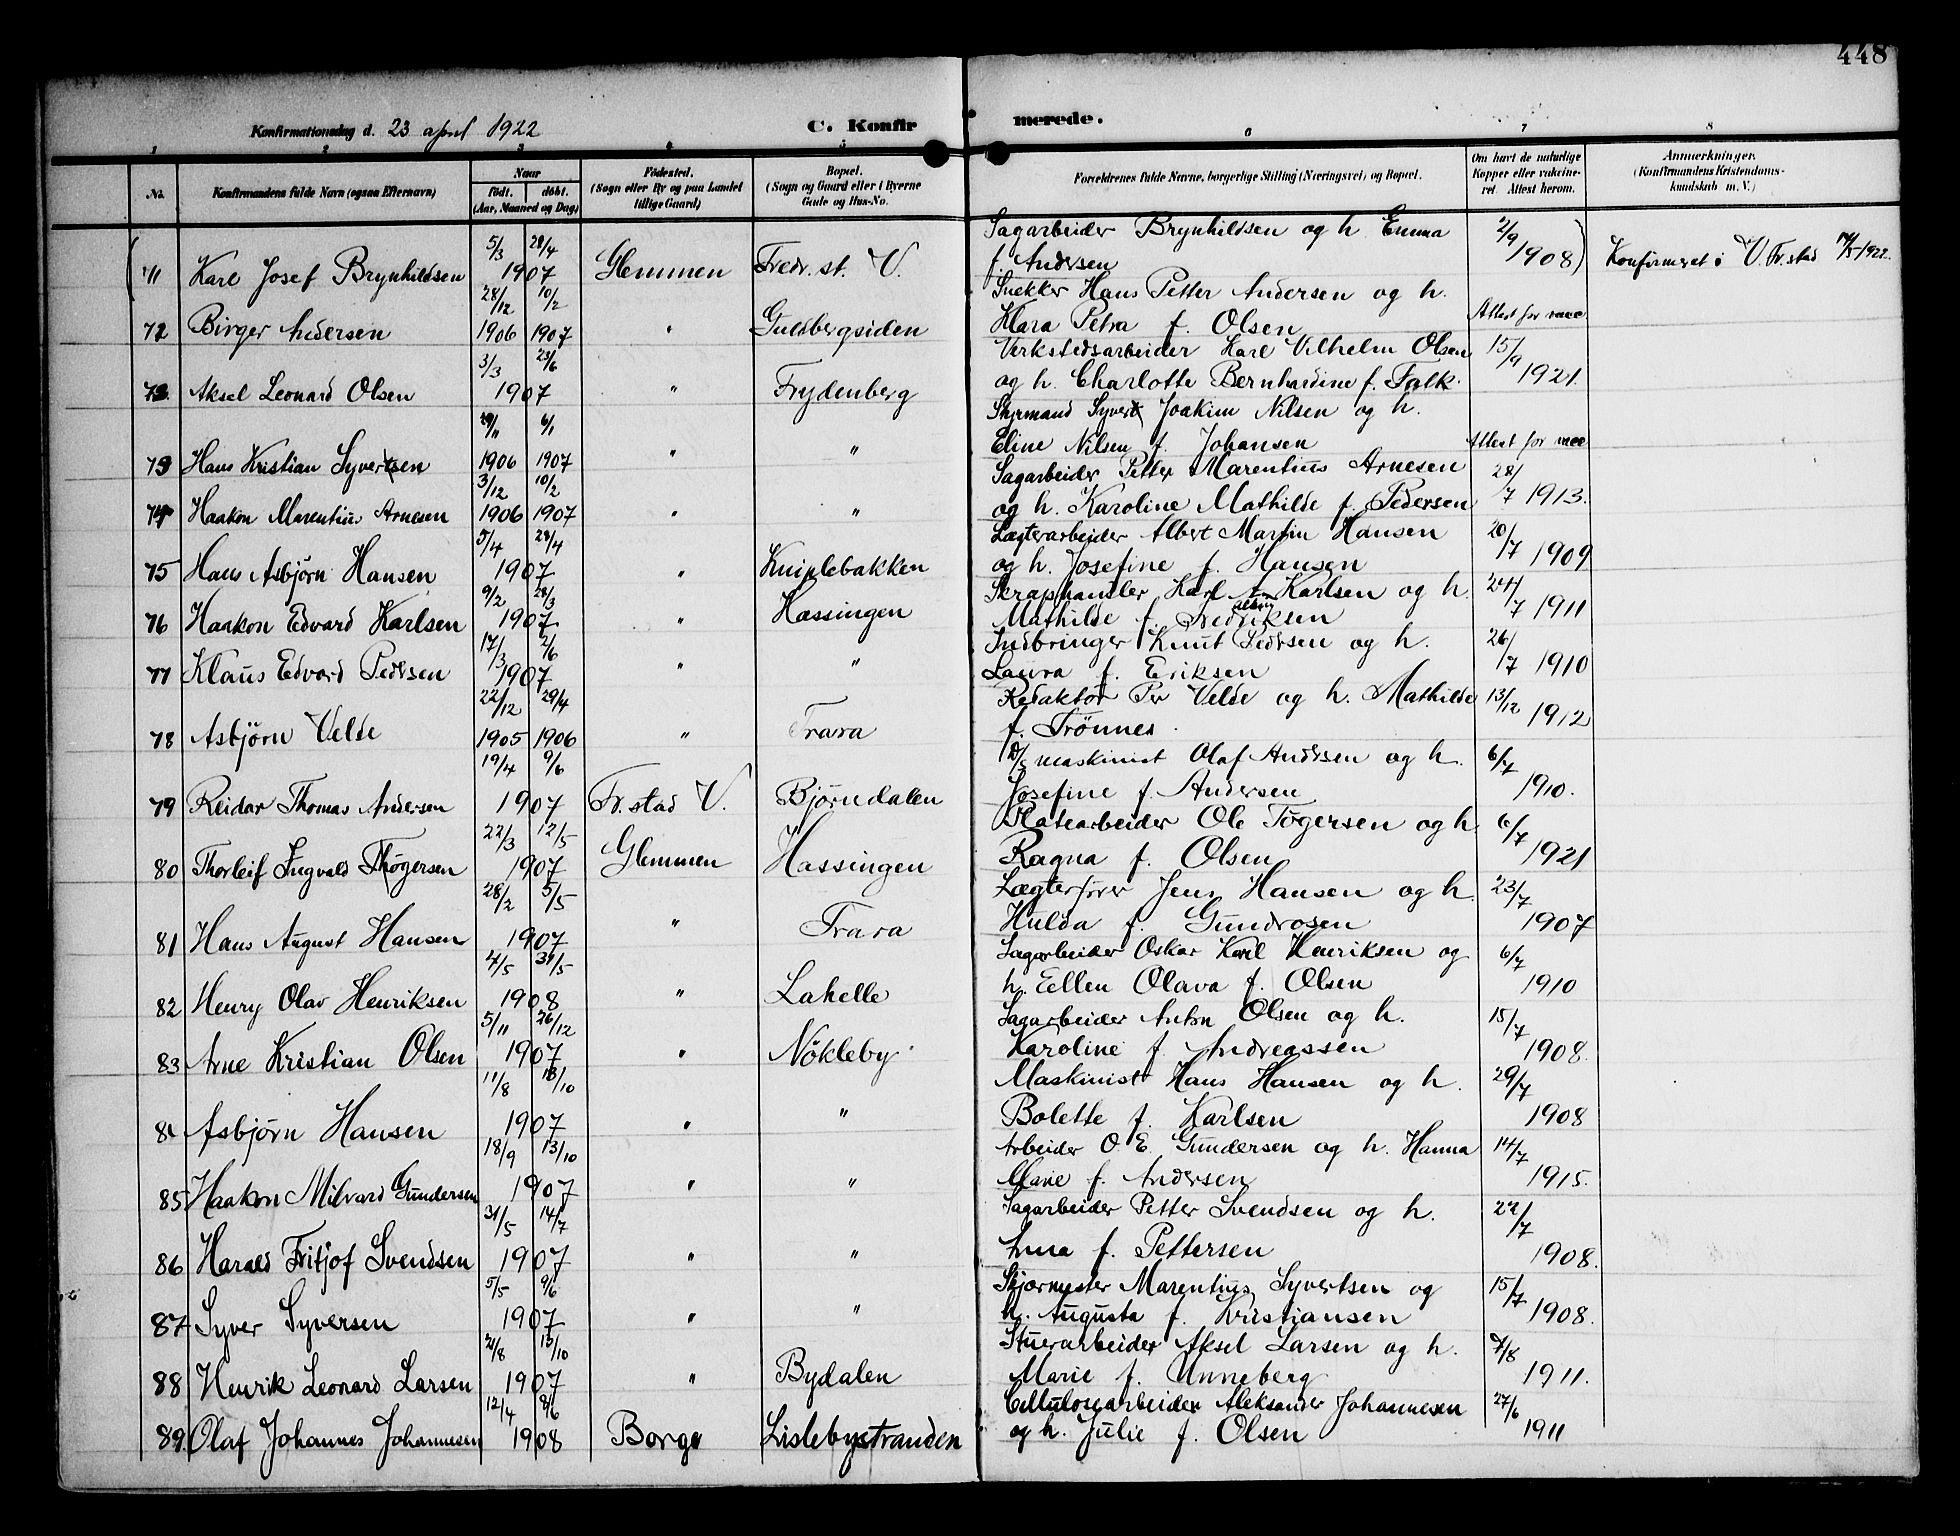 448
Konfirmationsdag d. 23 april 1922 C. Konfirmerede.
1 2 3 4 5 6 7 8
No. Konfirmandens fulde Navn (ogsaa Efternavn) Naar født. døbt. (Aar, Maaned og Dag) Födested. (Sogn eller By og paa Landet tillige Gaard) Bopæl. (Sogn og Gaard eller i Byerne Gade og Hus-No. Forældrenes fulde Navne, borgerlige Stilling (Næringsvei) og Bopæl. Om havt de naturlige Kopper eller vakcineret. Attest herom. Anmærkninger. (Konfirmandens Kristendomskundskab m. V.)
5/3 28/4 Sagarbeider Brynhildsen og h. Emma 2/9
(71 Karl Josef Brynhildsen 1907 Glemmen Fredr.st. V. f. Andersen 1908) Konfirmeret i V. Fr.stad 14/5 1922.
28/12 10/2 Snekker Hans Petter Andersen og h.
72 Birger Andersen 1906 1907 " Guldbergsiden Klara Petra f. Olsen Attest for vacc
3/3 23/6 Verkstedsarbeider Karl Vilhelm Olsen 15/9
73. Aksel Leonard Olsen 1907 " Frydenberg og h. Charlotte Bernhardine f. Falk. 1921.
29/11 6/1 Styrmand Syvert Joakim Nilsen og h.
73 Hans Kristian Syvertsen 1906 1907 " " Eline Nilsen f. Johansen Attest for vacc
3/12 10/2 Sagarbeider Petter Marentius Arnesen 28/7
74 Haakon Marentius Arnesen 1906 1907 " " og h. Karoline Mathilde f. Pedersen 1913.
5/4 28/4 Lægterarbeider Albert Martin Hansen 20/7
75 Hans Asbjörn Hansen 1907 " Kniplebakken og h. Josefine f. Hansen 1909
9/2 28/3 Skraphandler Karl Karlsen og h. 24/7
76 Haakon Edvard Karlsen 1907 " Hassingen Mathilde f. Fredriksen 1911
17/3 2/6 Indbringer Knut Pedersen og h. 26/7
77 Klaus Edvard Pedersen 1907 " " Laura f. Eriksen 1910
22/12 29/4 Redaktör Per Velde og h. Mathilde 13/12
78 Asbjörn Velde 1905 1906 " Trara f. Trönnes. 1912
19/4 9/6 D/S maskinist Olaf Andersen og h. 6/7
79 Reidar Thomas Andersen 1907 Fr.stad V. Björndalen Josefine f. Andersen 1910.
22/3 12/5 Platearbeider Ole Tögersen og h. 6/7
80 Thorleif Ingvald Thögersen 1907 Glemmen Hassingen Ragna f. Olsen 1921
28/2 5/5 Lægterfører Jens Hansen og h. 23/7
81 Hans August Hansen 1907 " Trara Hulda f. Gundrosen 1907
4/5 31/5 Sagarbeider Oskar Karl Henriksen og 6/7
82 Henry Olav Henriksen 1908 " Lahelle h. Ellen Olava f. Olsen 1910
5/11 26/12 Sagarbeider Anton Olsen og h. 15/7
83 Arne Kristian Olsen 1907 " Nökleby Karoline f. Andreassen 1908.
11/8 13/10 Maskinist Hans Hansen og h. 29/7
84 Asbjörn Hansen 1907 " " Bolette f. Karlsen 1908
18/9 13/10 Arbeider O. E. Gundersen og h. Hanna 14/7
85 Haakon Milvard Gundersen 1907 " " Marie f. Andersen 1915.
31/5 14/7 Sagarbeider Petter Svendsen og h. 22/7
86 Harald Fritjof Svendsen 1907 " " Anna f. Pettersen 1908.
5/5 9/6 Skjærmester Marentius Syvertsen og 15/7
87 Syver Syversen 1907 " " h. Augusta f. Kristiansen 1908.
21/8 13/10 Stuerarbeider Aksel Larsen og h. 7/8
88 Henrik Leonard Larsen 1907 " Bydalen Marie f. Unneberg 1911.
12/4 8/6 Cellulosearbeider Aleksander Johannesen 27/6
89. Olaf Johannes Johannesen 1908 Borge Lislebystranden og h. Julie f. Olsen 1911